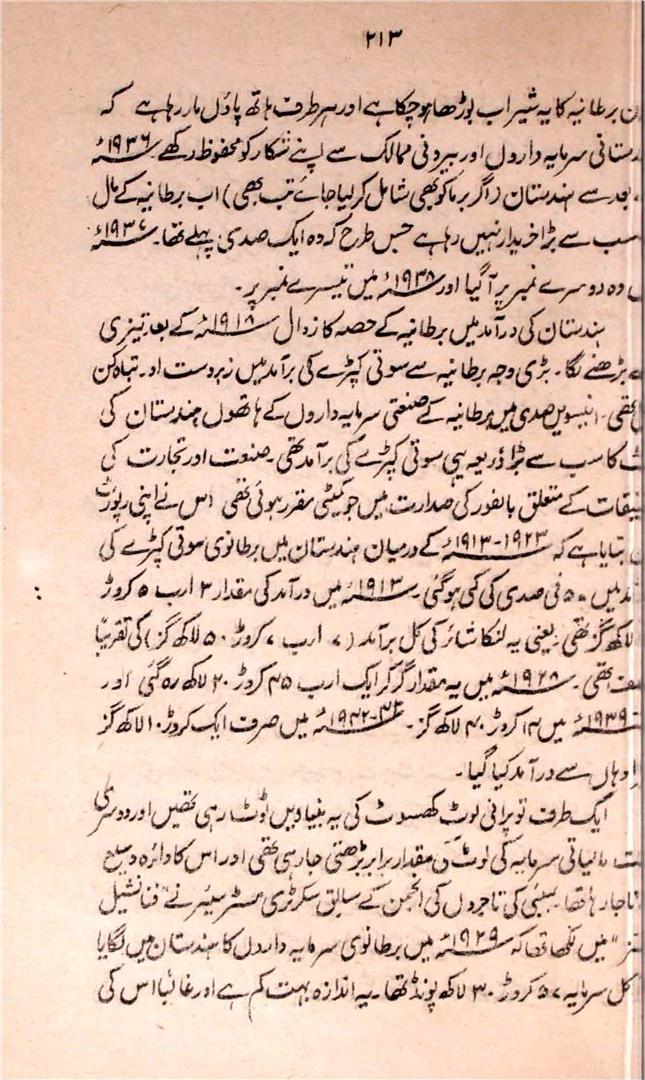 ۲۱۳
برطانیہ کا یہ شیر اب بوڑھا ہو چکا ہے اور ہر طرف ہاتھ پاؤں مار رہا ہے کہ
سرمایہ داروں اور بیرونی ممالک سے اپنے شکار کو محفوظ رکھے ۔ ۱۹۳۶ء
بعد سے ہندستان (اگر برما کو بھی شامل کر لیا جائے تب بھی) اب برطانیہ کے مال
سب سے بڑا خریدار نہیں رہا ہے جس طرح کہ وہ ایک صدی پہلے تھا۔ ۱۹۳۷ء
وہ دوسرے نمبر پر آگیا اور ۱۹۳۸ء میں تیسرے نمبر پر۔
ہندستان کی درآمد میں برطانیہ کے حصہ کا زوال ۱۹۱۸ء کے بعد تیزی
بڑھنے لگا۔ بڑی وجہ برطانیہ سے سوتی کپڑے کی برآمد میں زبردست اور تباہ کن
تھی۔ انیسویں صدی میں برطانیہ کے صنعتی سرمایہ داروں کے ہاتھوں ہندستان کی
کا سب سے بڑا ذریعہ یہی سوتی کپڑے کی برآمد تھی۔ صنعت اور تجارت کی
کے متعلق بالفور کی صدارت میں جو کمیٹی مقرر ہوئی تھی اس نے اپنی رپورٹ
بتایا ہے کہ ۱۹۲۳-۱۹۱۳ء کے درمیان ہندستان میں برطانوی سوتی کپڑے کی
میں ۵۰ فی صدی کی کمی ہوگئی۔ ۱۹۱۳ء میں درآمد کی مقدار ۳ ارب ۵ کروڑ
لاکھ گز تھی یعنی یہ لنکا شائر کی کل برآمد (۷ ارب ۷ کروڑ ۵۰ لاکھ گز) کی تقریباً
تھی۔ ۱۹۲۸ء میں یہ مقدار گر کر ایک ارب ۴۵ کروڑ ۲۰ لاکھ رہ گئی اور
۱۹۳۹ء میں ۱۴ کروڑ ۴۰ لاکھ گز۔ میں صرف ایک کروڑ ۱۰ لاکھ گز
وہاں سے درآمد کیا گیا۔
ایک طرف تو پرانی لوٹ کھسوٹ کی یہ بنیادیں ٹوٹ رہی تھیں اور دوسری
مالیاتی سرمایہ کی لوٹ کی مقدار برابر بڑھتی جا رہی تھی اور اس کا دائرہ وسیع
جا رہا تھا۔ بمبئی کی تاجروں کی انجمن کے سابق سکرٹری مسٹر سیئر نے "فنانشیل
میں لکھا تھا کہ ۱۹۲۹ء میں برطانوی سرمایہ داروں کا ہندستان میں لگایا
کل سرمایہ ۵۷ کروڑ ۳۰ لاکھ پونڈ تھا۔ یہ اندازہ بہت کم ہے اور غالباً اس کی